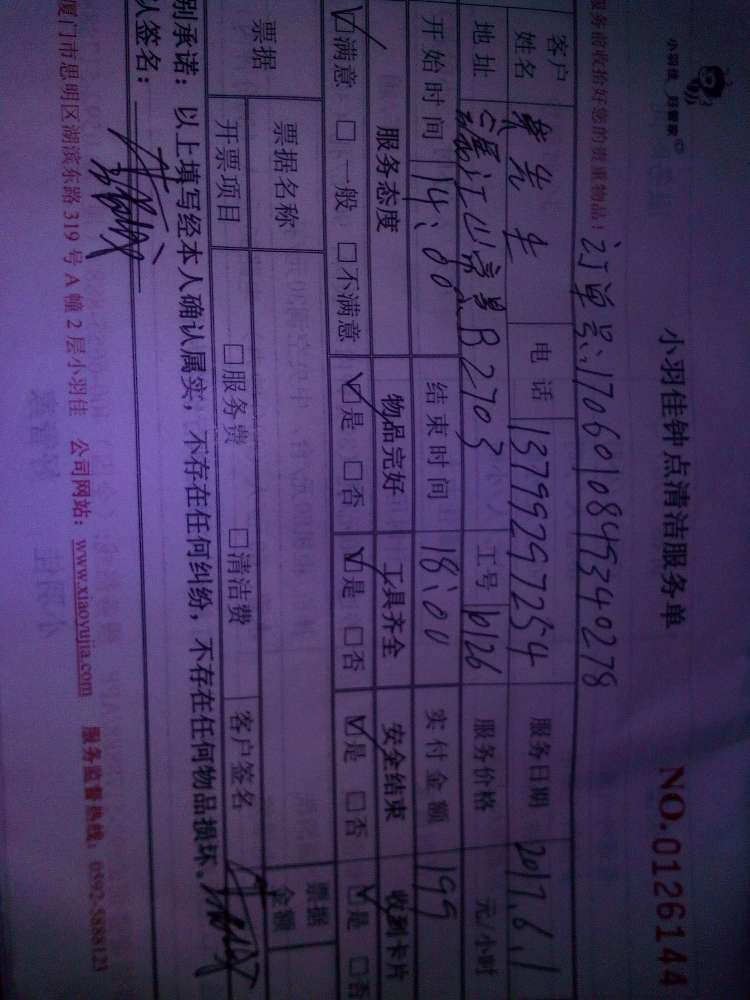 小羽佳 好管家
小羽佳钟点清洁服务单 NO.0126144
服务前收拾好您的贵重物品! 订单号:1706010849340278
客户姓名 先生 电话 13799297254 服务日期 2017.6.1
地址 江山帝景B2703 工号 b126 服务价格 元/小时
开始时间 14:00 结束时间 18:00 实付金额 199
服务态度 物品完好 工具齐全 安全结束 收到卡片
☑满意 □一般 □不满意 ☑是 □否 ☑是 □否 ☑是 □否 ☑是 □否
票据 票据名称 票据金额
开票项目 □服务费 □清洁费 客户签名
别承诺:以上填写经本人确认属实,不存在任何纠纷,不存在任何物品损坏。
认签名:
厦门市思明区湖滨东路319号A幢2层小羽佳 公司网站:www.xiaoyujia.com 服务监督热线:0592-5888123